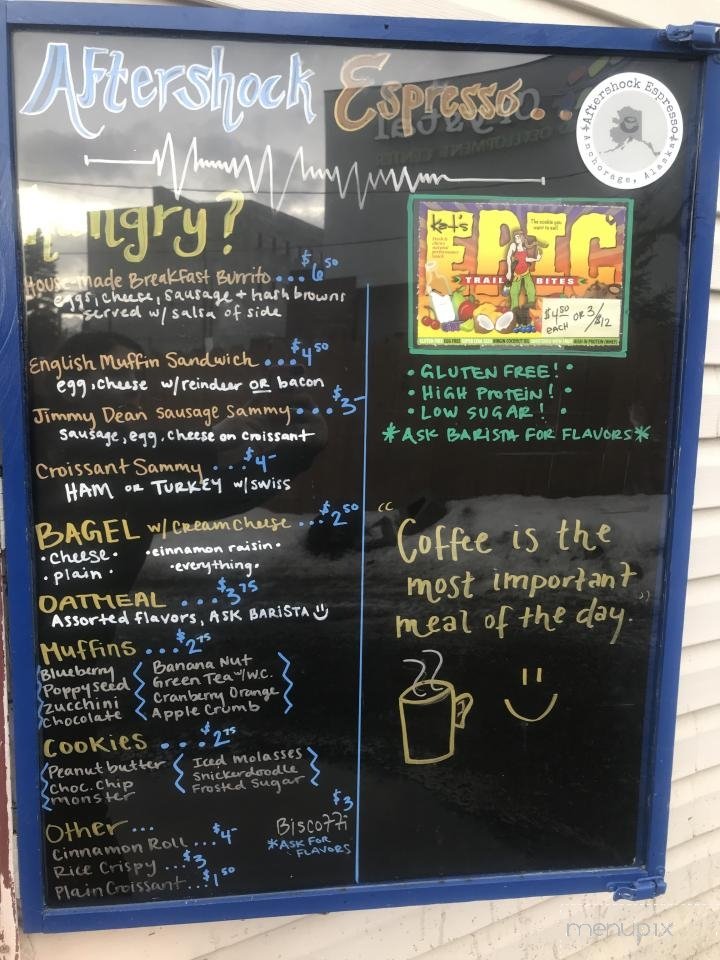 Aftershock Espresso...
Aftershock Espresso
Anchorage, Alaska
Hungry?
House-made Breakfast Burrito ... $6.50
eggs, cheese, sausage + hash browns
served w/ salsa of side
English Muffin Sandwich ... $4.50
egg, cheese w/reindeer OR bacon
Jimmy Dean Sausage Sammy ... $3-
Sausage, egg, cheese on croissant
Croissant Sammy ... $4-
HAM OR TURKEY w/swiss
BAGEL w/cream cheese ... $2.50
• cheese • • cinnamon raisin •
• plain • • everything •
OATMEAL ... $3.75
Assorted flavors, ASK BARISTA
Muffins ... $2.75
Blueberry
Poppyseed
Zucchini
Chocolate
Banana Nut
Green Tea w/ W.C.
Cranberry Orange
Apple Crumb
Cookies ... $2.75
Peanut butter
Choc. Chip
Monster
Iced Molasses
Snickerdoodle
Frosted Sugar
Other ...
Cinnamon Roll ... $4-
Rice Crispy ... $3
Plain Croissant ... $1.50
$3
Biscotti
*ASK FOR
FLAVORS
Kat's
EPIC
TRAIL BITES
The cookie you
want to eat!
$4.50 EACH OR 3/$12
• GLUTEN FREE! •
• HIGH PROTEIN! •
• LOW SUGAR! •
*ASK BARISTA FOR FLAVORS*
"Coffee is the
most important
meal of the day."
menupix